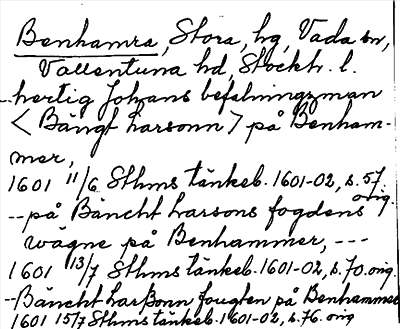 Benhamra, Stora, hg, Vada sn,
Vallentuna hd, Stockh. l.
--hertig Johans befalningzman
<Bängt harsonn> på Benham-
mer,
1601 11/6 Sthms tänkeb. 1601-02, s. 57.
orig.
--på Bäncht harsons fogdens
wägne på Benhammer, ---
1601 13/7 Sthms tänkeb. 1601-02, s. 70. orig.
--Bäncht harßonn fougten på Benhammer
1601 15/7 Sthms tänkeb. 1601-02, s. 76. orig